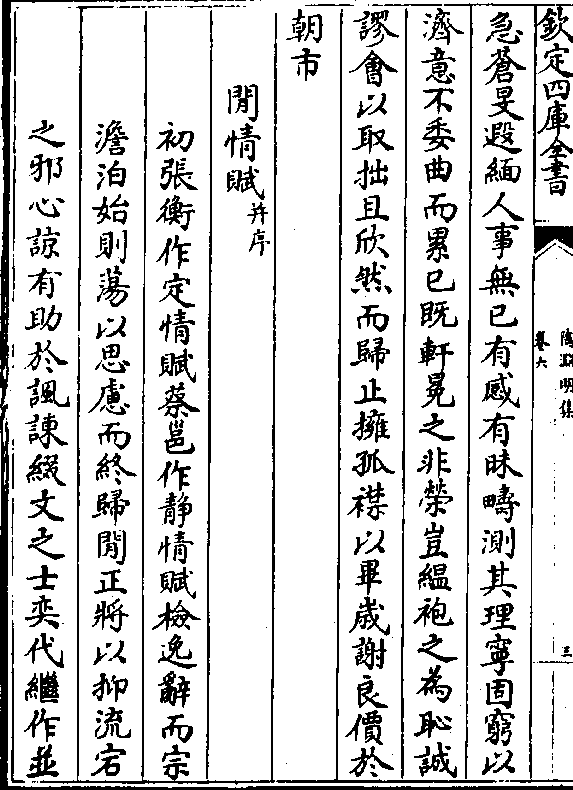 欽定四庫全書
陶淵明集
卷六
三
急蒼旻遐緬人事無已有感有昧疇測其理寧固窮以
濟意不委曲而累已既軒冕之非榮豈縕袍之為恥誠
謬會以取拙且欣然而歸止擁孤襟以畢歳謝良價於
朝市
閒情賦并序
初張衡作定情賦蔡邕作静情賦檢逸辭而宗
澹泊始則蕩以思慮而終歸閒正將以抑流宕
之邪心諒有助於諷諫綴文之士奕代繼作並